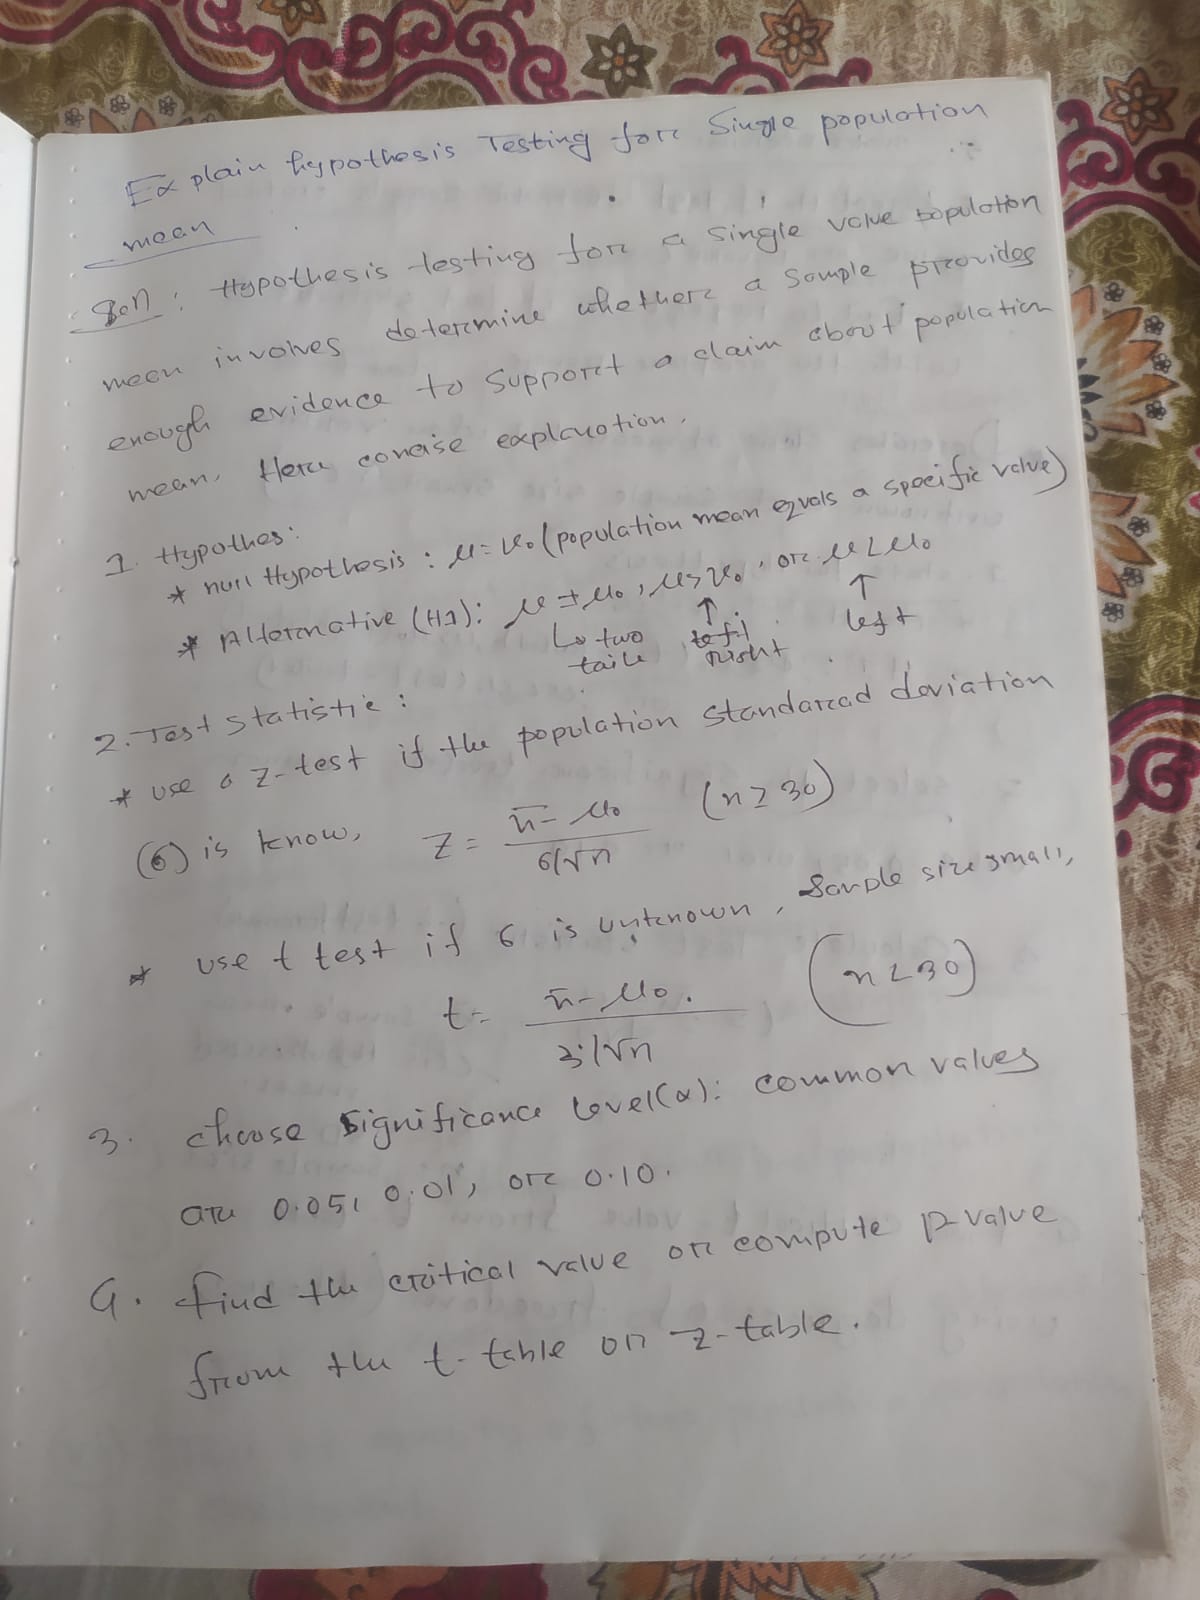 Explain hypothesis Testing for Single population
mean
Soln: Hypothesis testing for a single value population
mean involves determine whether a sample provides
enough evidence to support a claim about population
mean. Here concise explanation.
1. Hypothes:
* null Hypothesis : μ=μ₀ (population mean equals a specific value)
* Alternative (H1): μ ≠ μ₀, μ>μ₀, or μ<μ₀
↳ two ↑ ↑
taile left right left
2. Test statistic:
* use a z-test if the population standard deviation
(σ) is know, z = x̄ - μ₀ / σ/√n (n ≥ 30)
* use t test if σ is unknown, Sample size small,
t = x̄ - μ₀. / s/√n (n < 30)
3. choose significance level(α): common values
are 0.05, 0.01, or 0.10.
4. find the critical value or compute p-value
from the t-table or z-table.